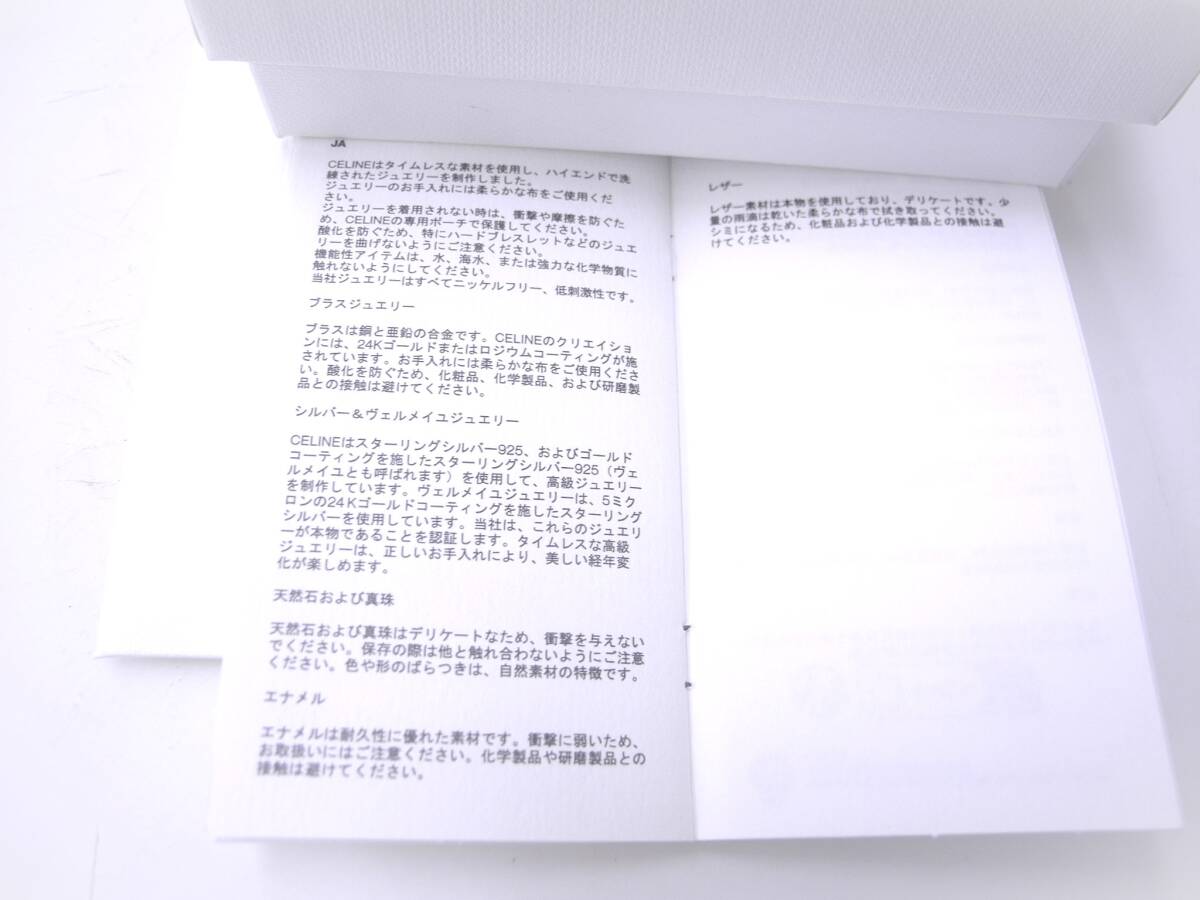 JA
CELINEはタイムレスな素材を使用し、ハイエンドで洗
練されたジュエリーを制作しました。
ジュエリーのお手入れには柔らかな布をご使用くだ
さい。
ジュエリーを着用されない時は、衝撃や摩擦を防ぐた
め、CELINEの専用ポーチで保護してください。
酸化を防ぐため、特にハードブレスレットなどのジュエ
リーを曲げないようにご注意ください。
機能性アイテムは、水、海水、または強力な化学物質に
触れないようにしてください。
当社ジュエリーはすべてニッケルフリー、低刺激性です。
ブラスジュエリー
ブラスは銅と亜鉛の合金です。CELINEのクリエイショ
ンには、24Kゴールドまたはロジウムコーティングが施
されています。お手入れには柔らかな布をご使用くださ
い。酸化を防ぐため、化粧品、化学製品、および研磨製
品との接触は避けてください。
シルバー＆ヴェルメイユジュエリー
CELINEはスターリングシルバー925、およびゴールド
コーティングを施したスターリングシルバー925（ヴェ
ルメイユとも呼ばれます）を使用して、高級ジュエリー
を制作しています。ヴェルメイユジュエリーは、5ミク
ロンの24Kゴールドコーティングを施したスターリング
シルバーを使用しています。当社は、これらのジュエリ
ーが本物であることを認証します。タイムレスな高級
ジュエリーは、正しいお手入れにより、美しい経年変
化が楽しめます。
天然石および真珠
天然石および真珠はデリケートなため、衝撃を与えない
でください。保存の際は他と触れ合わないようにご注意
ください。色や形のばらつきは、自然素材の特徴です。
エナメル
エナメルは耐久性に優れた素材です。衝撃に弱いため、
お取扱いにはご注意ください。化学製品や研磨製品との
接触は避けてください。
レザー
レザー素材は本物を使用しており、デリケートです。少
量の雨滴は乾いた柔らかな布で拭き取ってください。
シミになるため、化粧品および化学製品との接触は避
けてください。